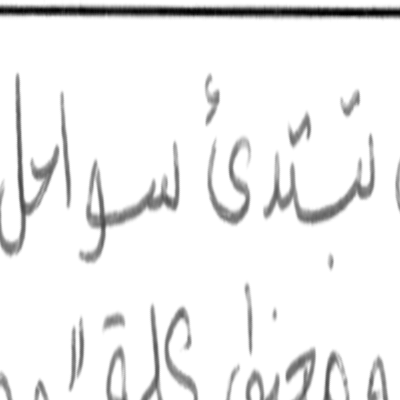 تبتدئ سواحل
ومعنى كلمة "